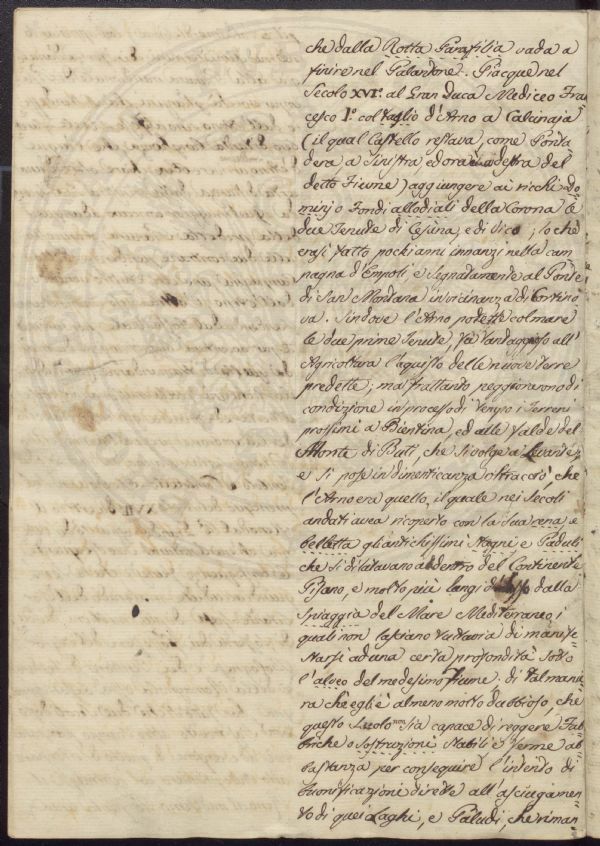 che dalla Rotta Garafilia vada a
finire nel Galandone. Piacque nel
Secolo XVI.º al Gran duca Mediceo Fran
cesco I.º col taglio d'Arno a Calcinaja
(il qual Castello restava, come Ponta
dera a Sinistra, ed ora è a destra del
detto Fiume) aggiungere ai ricchi Do
minj o Fondi allodiali della Corona le
due Tenute di Cesina, e di Vico; lo che
erasi fatto pochi anni innanzi nella cam
pagna d'Empoli, e Segnatamente al Ponte
di San Montana in vicinanza di Cortino
va. Sin dove l'Arno potette colmare
le due prime Tenute, fù vantaggioso all'
Agricoltura l'aquisto delle nuove terre
predette; ma frattanto peggiorarono di
condizione in processo di tempo i Terreni
prossimi a Bientina, ed alle falde del
Monte di Buti, che si volge a Levante,
e si pose in dimenticanza oltracciò, che
l'Arno era quello, il quale nei Secoli
andati avea ricoperto con la Sua cena, e
belletta gli antichissimi Stagni e Paduli
che si dilatavano al di dentro del Continente
Pisano, e molto più lungi dalla
Spiaggia del Mare Mediterraneo, i
quali non lasciano tuttavia di manife=
starsi ad una certa profondità sotto
l'alveo del medesimo Fiume: di tal manie
ra che egli è almeno molto dubbioso, che
questo Suolo non sia capace di reggere Fab=
briche o Sostruzioni stabili e ferme ab
bastanza per conseguire l'intento di
buonificazioni dirette all'asciugamen
to di quei Laghi, e Paludi, che riman=